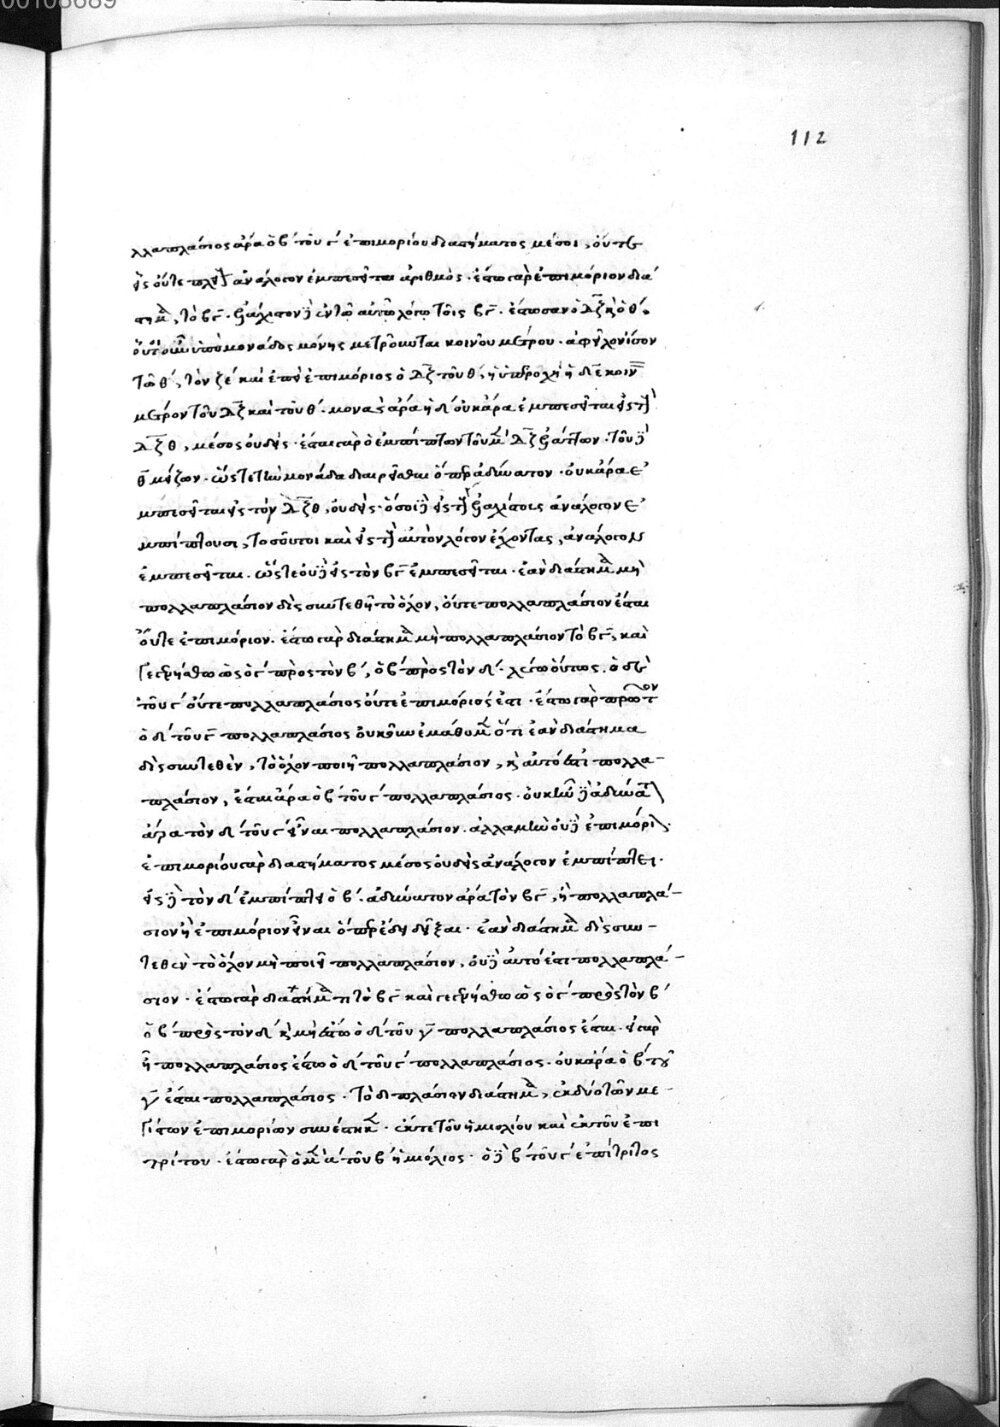 00108689
112
λλαπλάσιος ἄρα ὁ β΄ τοῦ γ΄ ἐπιμορίου διαστήματος μέσοι, οὔτε
εἷς οὔτε πλείους ἀνάλογον ἐμπεσεῖται ἀριθμὸς. ἔστω γὰρ ἐπιμόριον διά
στημα, τὸ βγ. ἐλάχιστοι δὲ ἐν τῷ αὐτῷ λόγῳ τοῖς βγ. ἔστωσαν ὁ δζ καὶ ὁ θ΄.
οὗτοι οὖν ὑπὸ μονάδος μόνης μετροῦνται κοινοῦ μέτρου. ἄφελε ἴσον
τῷ θ΄, τὸν ζε΄ καὶ ἐπεὶ ἐπιμόριος ὁ δζ τοῦ θ΄, ἡ ὑπεροχὴ ἡ δε κοινὸν
μέτρον τοῦ δζ καὶ τοῦ θ΄. μονὰς ἄρα ἡ δ΄ οὐκ ἄρα ἐμπεσεῖται εἰς τοὺς
δζ θ, μέσος οὐδείς. ἔσται γὰρ ὁ ἐμπίπτων τοῦ μὲν δζ ἐλάττων. τοῦ δὲ
θ μείζων. ὥστε τὴν μονάδα διαιρεῖσθαι ὅπερ ἀδύνατον. οὐκ ἄρα ἐ
μπεσεῖται εἰς τὸν δζ θ, οὐδείς. ὅσοι δὲ εἰς τοὺς ἐλαχίστους ἀνάλογον ἐ
μπίπτουσι, τοσοῦτοι καὶ εἰς τοὺς αὐτὸν λόγον ἔχοντας, ἀνάλογον
ἐμπεσεῖται. ὥστε οὐδὲ εἰς τὸν βγ ἐμπεσεῖται. ἐὰν διάστημα μὴ
πολλαπλάσιον δὶς συντεθῇ τὸ ὅλον, οὔτε πολλαπλάσιον ἔσται
οὔτε ἐπιμόριον. ἔστω γὰρ διάστημα μὴ πολλαπλάσιον τὸ βγ, καὶ
γεγενήσθω ὡς ὁ γ΄ πρὸς τὸν β΄, ὁ β΄ πρὸς τὸν δ΄. λέγω οὕτως. ὁ δ΄
τοῦ γ΄ οὔτε πολλαπλάσιος οὔτε ἐπιμόριός ἐστι. ἔστω γὰρ πρῶτον
ὁ δ΄ τοῦ γ πολλαπλάσιος οὐκοῦν ἐμάθομεν ὅτι ἐὰν διάστημα
δὶς συντεθὲν, τὸ ὅλον ποιῇ πολλαπλάσιον, καὶ αὐτό ἐστι πολλα-
πλάσιον, ἔσται ἄρα ὁ β΄ τοῦ γ΄ πολλαπλάσιος. οὐκ ἦν δὲ ἀδύνατον
ἄρα τὸν δ΄ τοῦ γ΄ εἶναι πολλαπλάσιον. ἀλλὰ μὴν οὐδὲ ἐπιμόριον.
ἐπιμορίου γὰρ διαστήματος μέσος οὐδεὶς ἀνάλογον ἐμπίπτει.
εἰς δὲ τὸν δ΄ ἐμπίπτει ὁ β΄. ἀδύνατον ἄρα τὸν βγ, ἢ πολλαπλά-
σιον ἢ ἐπιμόριον εἶναι ὅπερ ἔδει δεῖξαι. ἐὰν διάστημα δὶς συν-
τεθὲν τὸ ὅλον μὴ ποιῇ πολλαπλάσιον, οὐδὲ αὐτό ἐστι πολλαπλά-
σιον. ἔστω γὰρ διάστημά τι τὸ βγ καὶ γεγενήσθω ὡς ὁ γ΄ πρὸς τὸν β΄
ὁ β΄ πρὸς τὸν δ΄ καὶ μὴ ἔστω ὁ δ΄ τοῦ γ πολλαπλάσιος ἔσται. εἰ γὰρ
ἦ πολλαπλάσιος ἔστω ὁ δ΄ τοῦ γ΄ πολλαπλάσιος. οὐκ ἄρα ὁ β΄ τοῦ
γ ἔσται πολλαπλάσιος. τὸ διπλάσιον διάστημα, ἐκ δύο τῶν με-
γίστων ἐπιμορίων συνέστηκε. ἔκ τε τοῦ ἡμιολίου καὶ ἐκ τοῦ ἐπι
τρίτου. ἔστω γὰρ ὁ μὲν α΄ τοῦ β΄ ἡμιόλιος. ὁ δὲ β΄ τοῦ γ΄ ἐπίτριτος